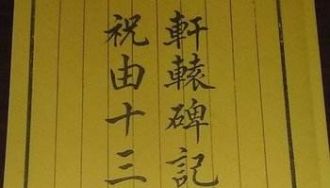 軒轅碑記
祝由十三